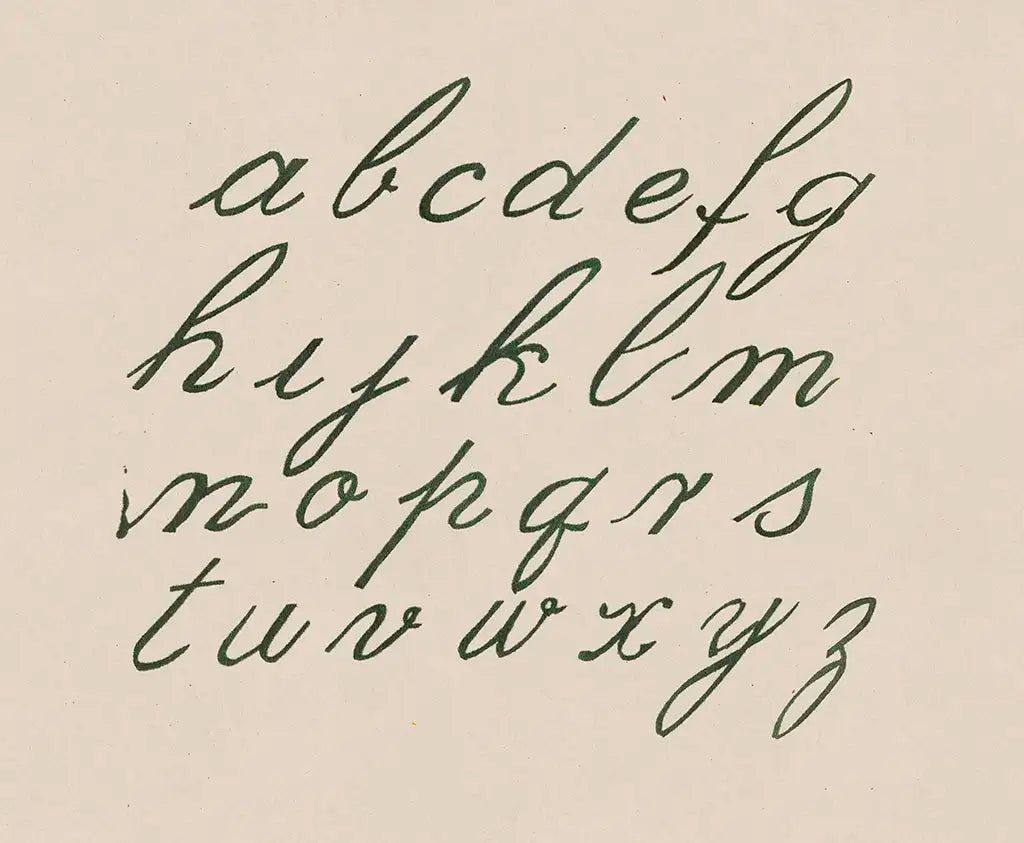 a b c d e f g
h ı ȷ k l m
n o p q r s
t u v w x y z